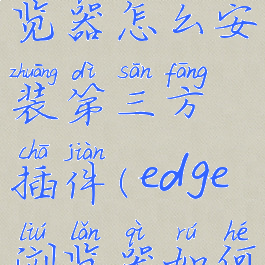 览器怎么安
zhuāng dì sān fāng
装第三方
chā jiàn
插件(edge
liú lǎn qì rú hé
浏览器如何